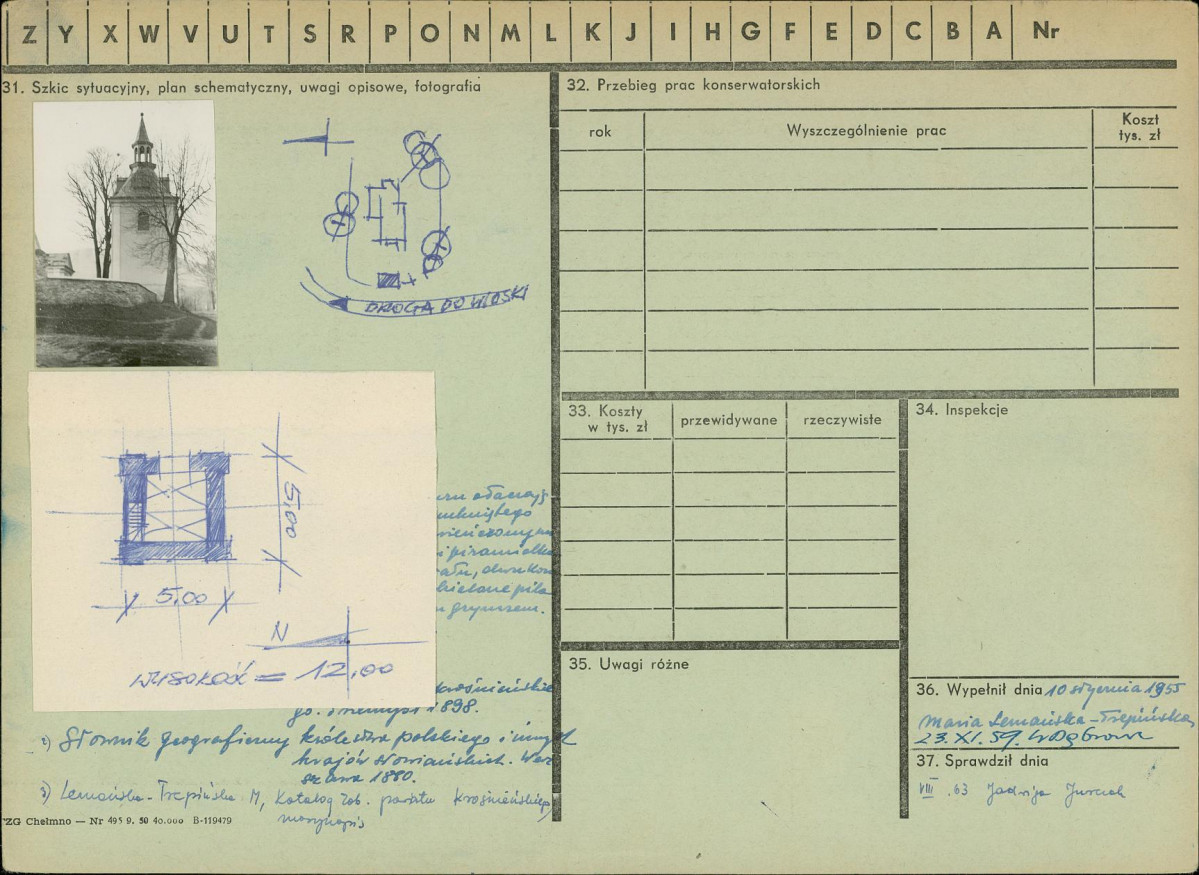 Z Y X W V U T S R P O N M L K J I H G F E D C B A Nr
31. Szkic sytuacyjny, plan schematyczny, uwagi opisowe, fotografia
DROGA DO WIOSKI
5.00
5.00
N
WYSOKOŚĆ = 12.00
1898.
2) Słownik geograficzny królestwa polskiego i innych
krajów słowiańskich. War
szawa 1880.
3) Lemańska-Trepińska M, Katalog zab. powiatu krośnieńskiego
maszynopis
ZG Chełmno — Nr 495 9. 50 40.000 B-119479
32. Przebieg prac konserwatorskich
rok
Wyszczególnienie prac
Koszt
tys. zł
33. Koszty
w tys. zł
przewidywane
rzeczywiste
34. Inspekcje
35. Uwagi różne
36. Wypełnił dnia 10 stycznia 1955
Maria Lemańska-Trepińska
23.XI.59.
37. Sprawdził dnia
VIII .63 Jadwiga